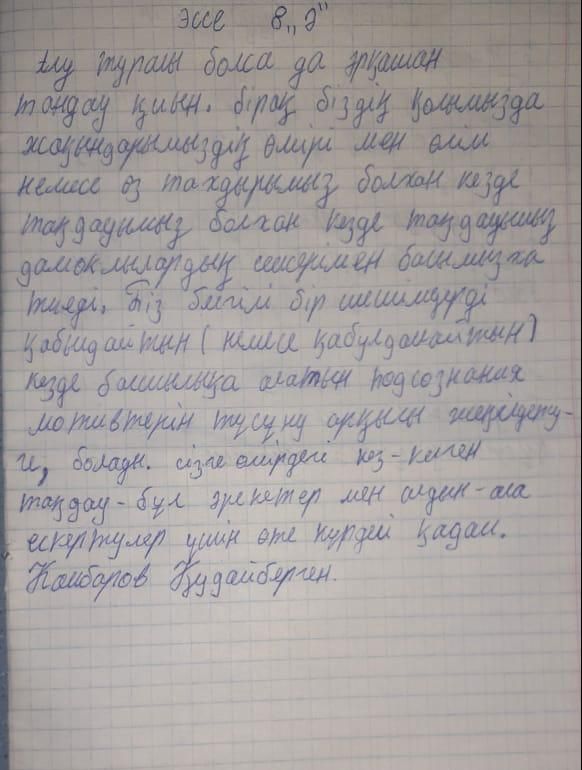 эссе 8 „Ә"
Ату туралы болса да әрқашан
таңдау қиын. бірақ біздің қолымызда
жақындарымыздің өмірі мен өлім
немесе өз тахдырымыз болхан кезде
таңдауымыз болхан кезде таңдауымыз
дамоклылардың семсерімен басымызха
тиеді. Біз белгілі бір шешімдерді
қабылдайтын (немесе қабулдамайтын)
кезде басшылыққа алатын подсознания
мотивтерін түсүну арқылы жеңілдету-
ге, болады. сізге өмірдегі кез-келген
таңдау - бұл әрекетер мен алдын-ала
ескертулер үшін өте күрдей қадам.
Камбаров Құдайберген.